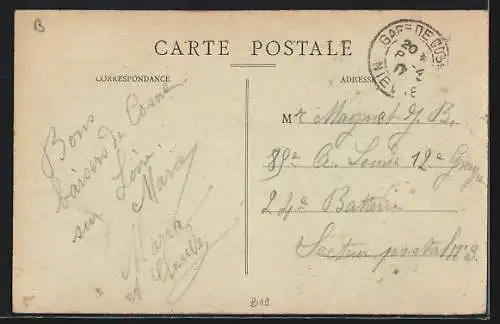 B
CARTE POSTALE
CORRESPONDANCE
ADRESSE
GARE DE COSNE
20
NIE
Bons
baisers de Cosne
sur Loire
Maria
Maria
et Claude
Mr Magnet J. B.
85e A. Lourde 12e Groupe
24e Batterie
Secteur postal No 3.
B19